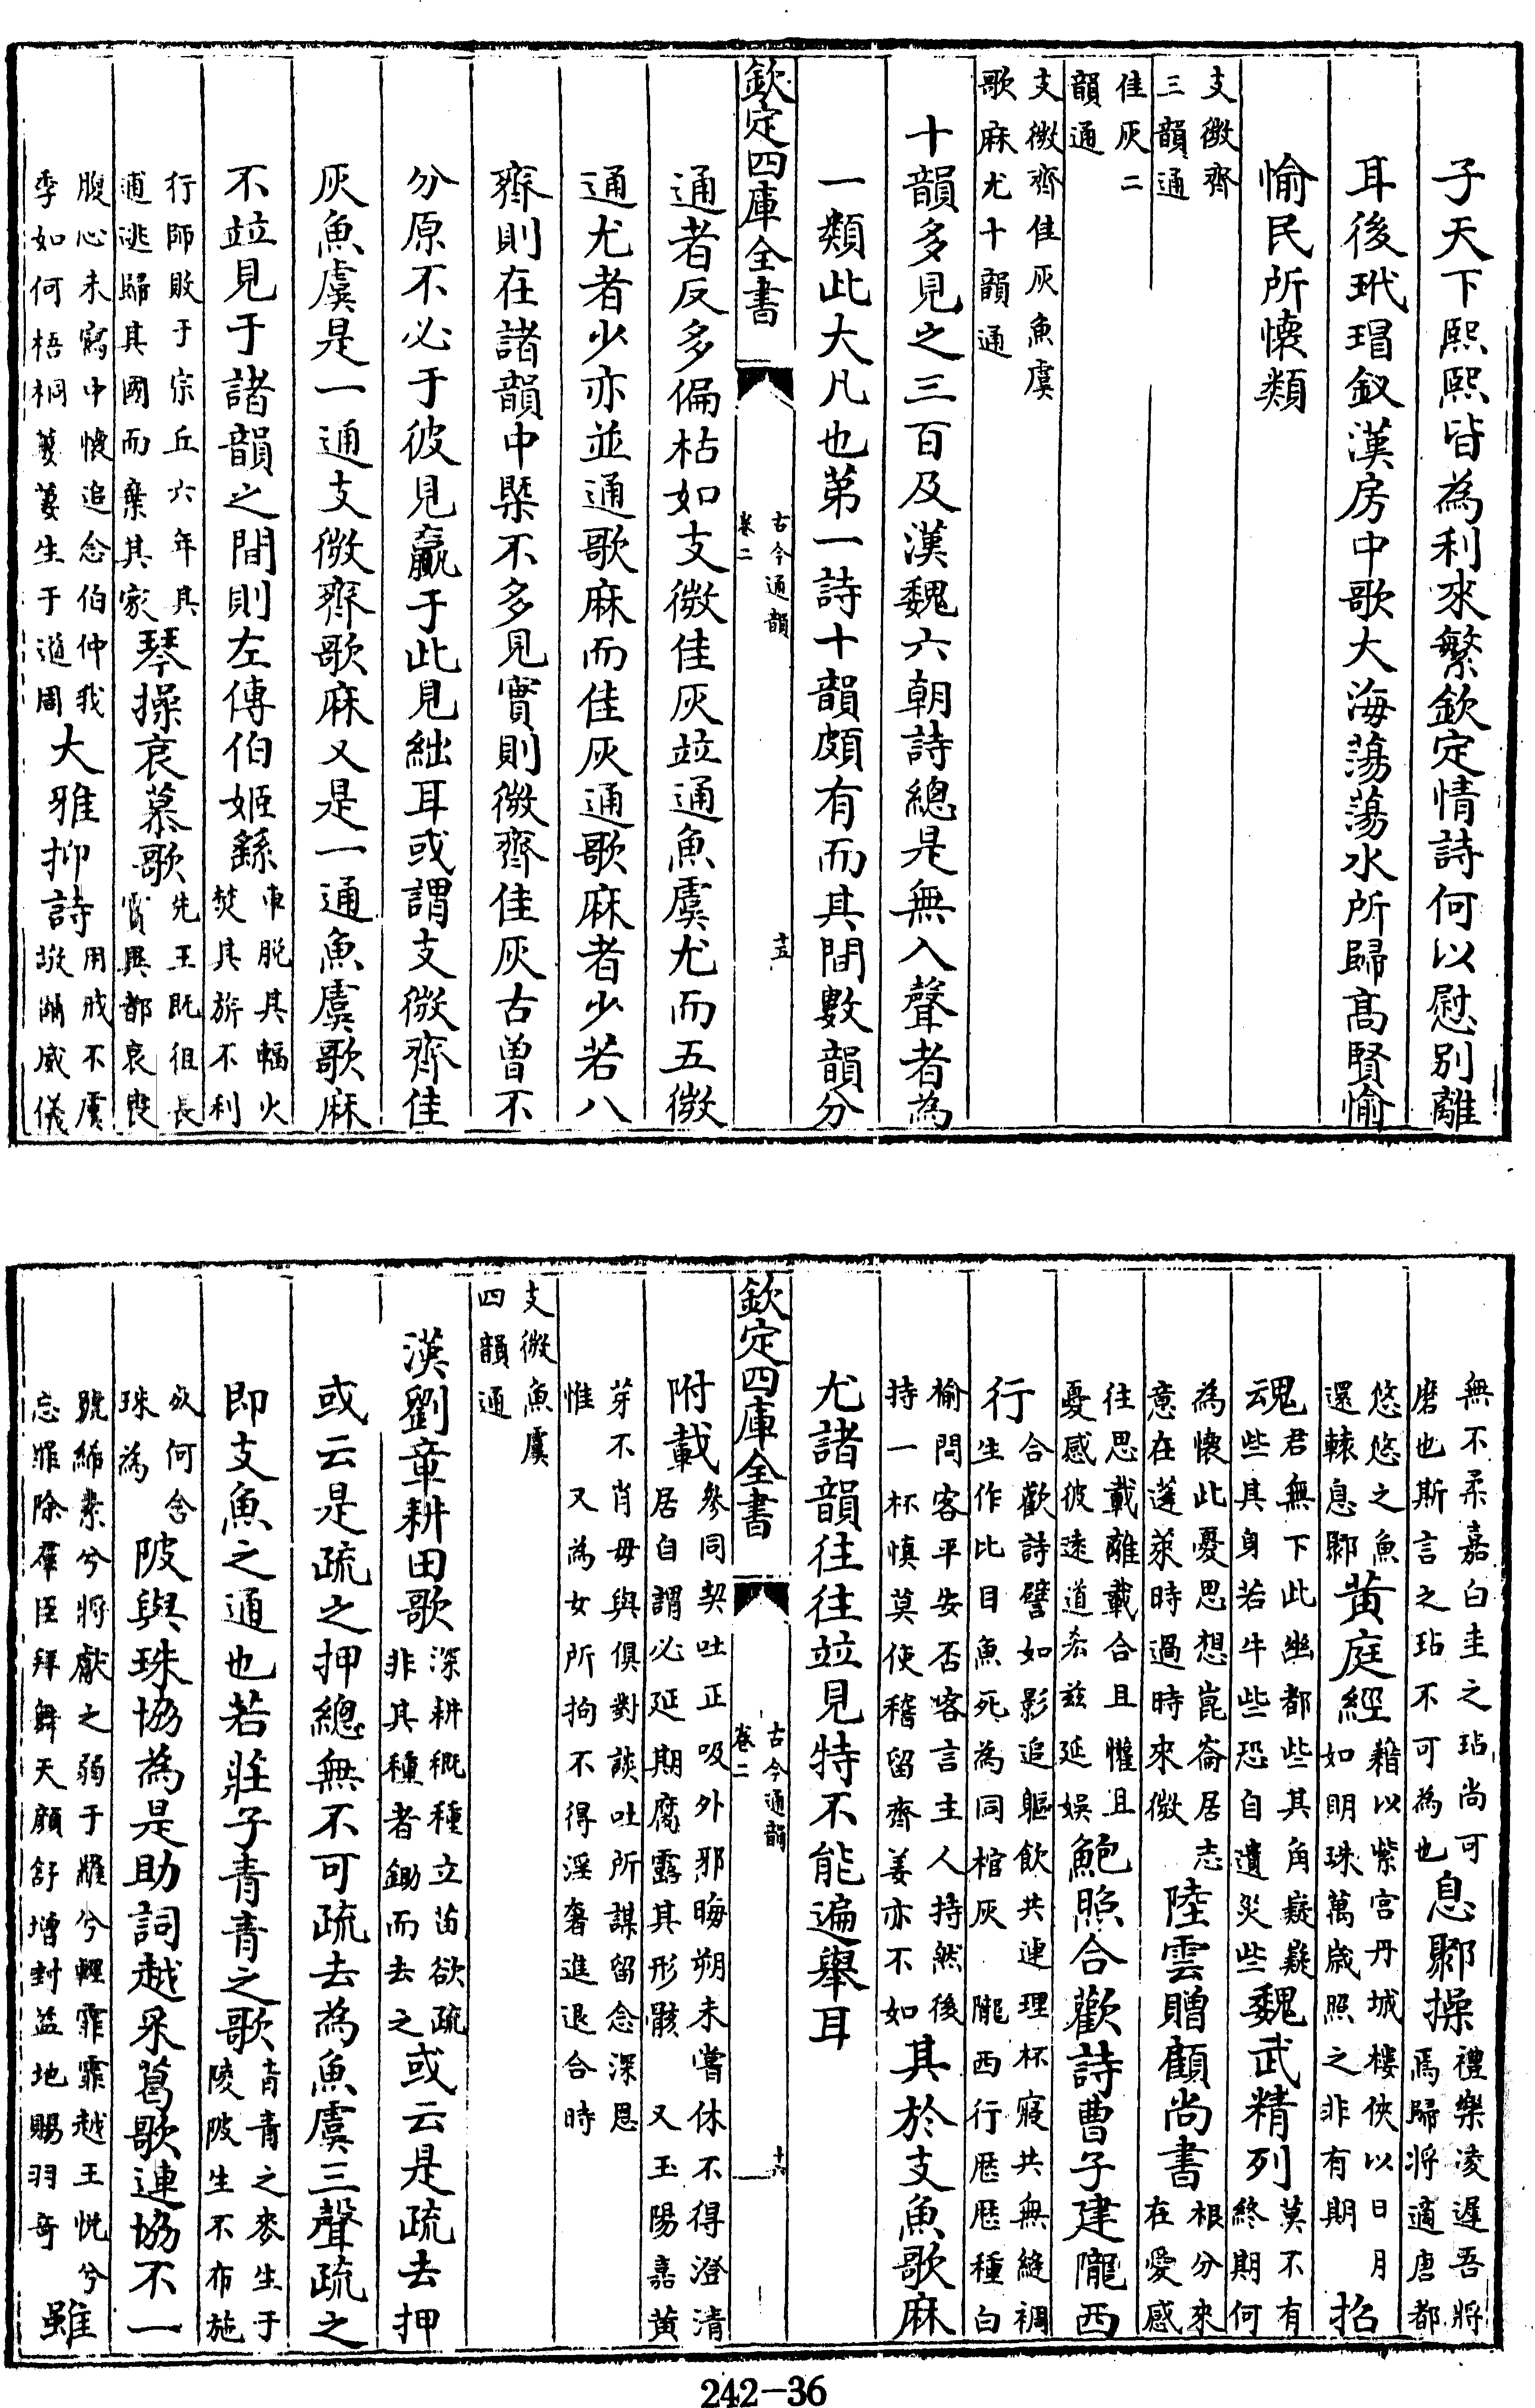 子天下熙熙皆為利來繁欽定情詩何以慰别離
耳後玳瑁釵漢房中歌大海蕩蕩水所歸髙賢愉
愉民所懐類
支微齊
三韻通
佳灰二
韻通
支微齊佳灰魚虞
歌麻尤十韻通
十韻多見之三百及漢魏六朝詩總是無入聲者為
一類此大凡也第一詩十韻頗有而其間數韻分
欽定四庫全書
古今通韻
卷二
十五
通者反多偏枯如支微佳灰竝通魚虞尤而五微
通尤者少亦並通歌麻而佳灰通歌麻者少若八
齊則在諸韻中槩不多見實則微齊佳灰古曾不
分原不必于彼見贏于此見絀耳或謂支微齊佳
灰魚虞是一通支微齊歌麻又是一通魚虞歌麻
不竝見于諸韻之間則左傳伯姬繇
車脱其輻火
焚其旂不利
行師敗于宗丘六年其
逋逃歸其國而棄其家
琴操哀慕歌
先王既徂長
賓異都哀喪
腹心未寫中懐追念伯仲我
季如何梧桐萋萋生于道周
大雅抑詩
用戒不虞
敬爾威儀
無不柔嘉白圭之玷尚可
磨也斯言之玷不可為也
息鄹操
禮樂凌遲吾將
焉歸將適唐都
悠悠之魚
還轅息鄹
黄庭經
籍以紫宫丹城樓俠以日月
如明珠萬歳照之非有期
招
魂
君無下此幽都些其角觺觺
些其身若牛些恐自遺災些
魏武精列
莫不有
終期何
為懐此憂思想崑崙居志
意在蓬萊時過時來微
陸雲贈顧尚書
根分來
在愛感
往思載離載合且懽且
憂感彼逺道茲延娱
鮑照合歡詩曹子建隴西
行
合歡詩譬如影追軀飲共連理杯寢共無縫裯
生作比目魚死為同棺灰隴西行歴歴種白
榆問客平安否客言主人持然後
持一杯慎莫使稽留齊姜亦不如
其於支魚歌麻
尤諸韻往往竝見特不能遍舉耳
欽定四庫全書
古今通韻
卷二
十六
附載
參同契吐正吸外邪晦朔未嘗休不得澄清
居自謂必延期腐露其形骸又玉陽嘉黄
芽不肖毋與俱對談吐所謀留念深思
惟又為女所拘不得淫奢進退合時
支微魚虞
四韻通
漢劉章耕田歌
深耕穊種立苗欲疏
非其種者鋤而去之
或云是疏去押
或云是疏之押總無不可疏去為魚虞三聲疏之
即支魚之通也若莊子青青之歌
青青之麥生于
陵陂生不布施
何含
珠為
陂與珠協為是助詞越采葛歌連協不一
號絺素兮將獻之弱于羅兮輕霏霏越王恱兮
忘罪除羣臣拜舞天顔舒增封益地賜羽奇
雖
242-36